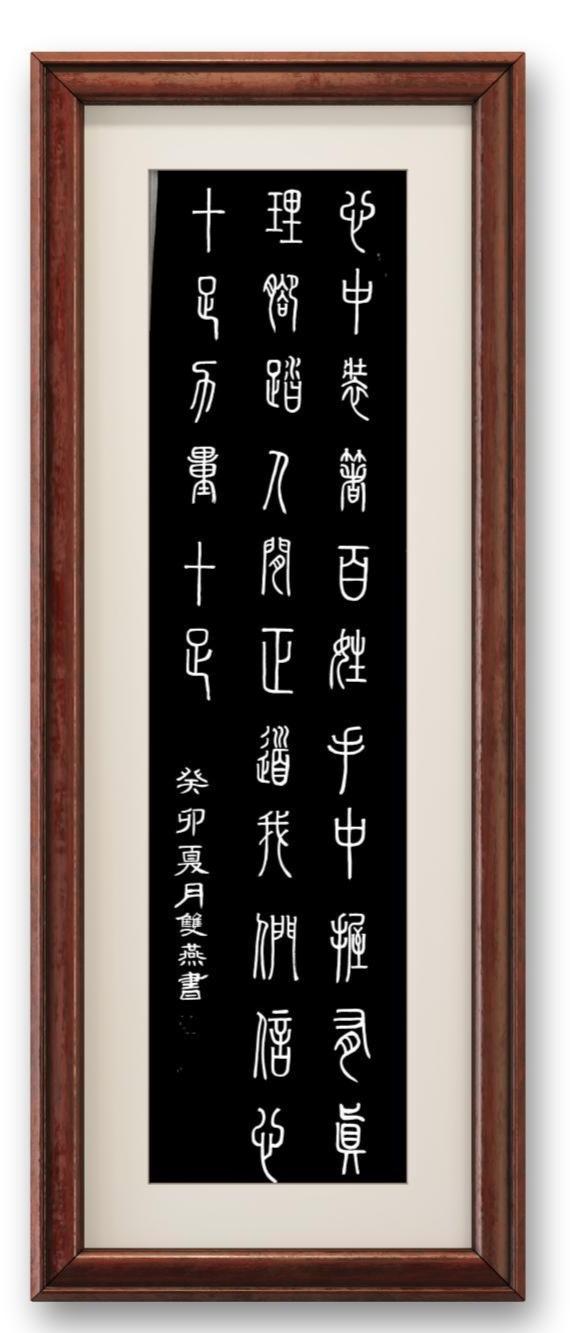 心中裝箸百姓手中握有眞
理腳踏人間正道我們信心
十足力量十足
癸卯夏月雙燕書